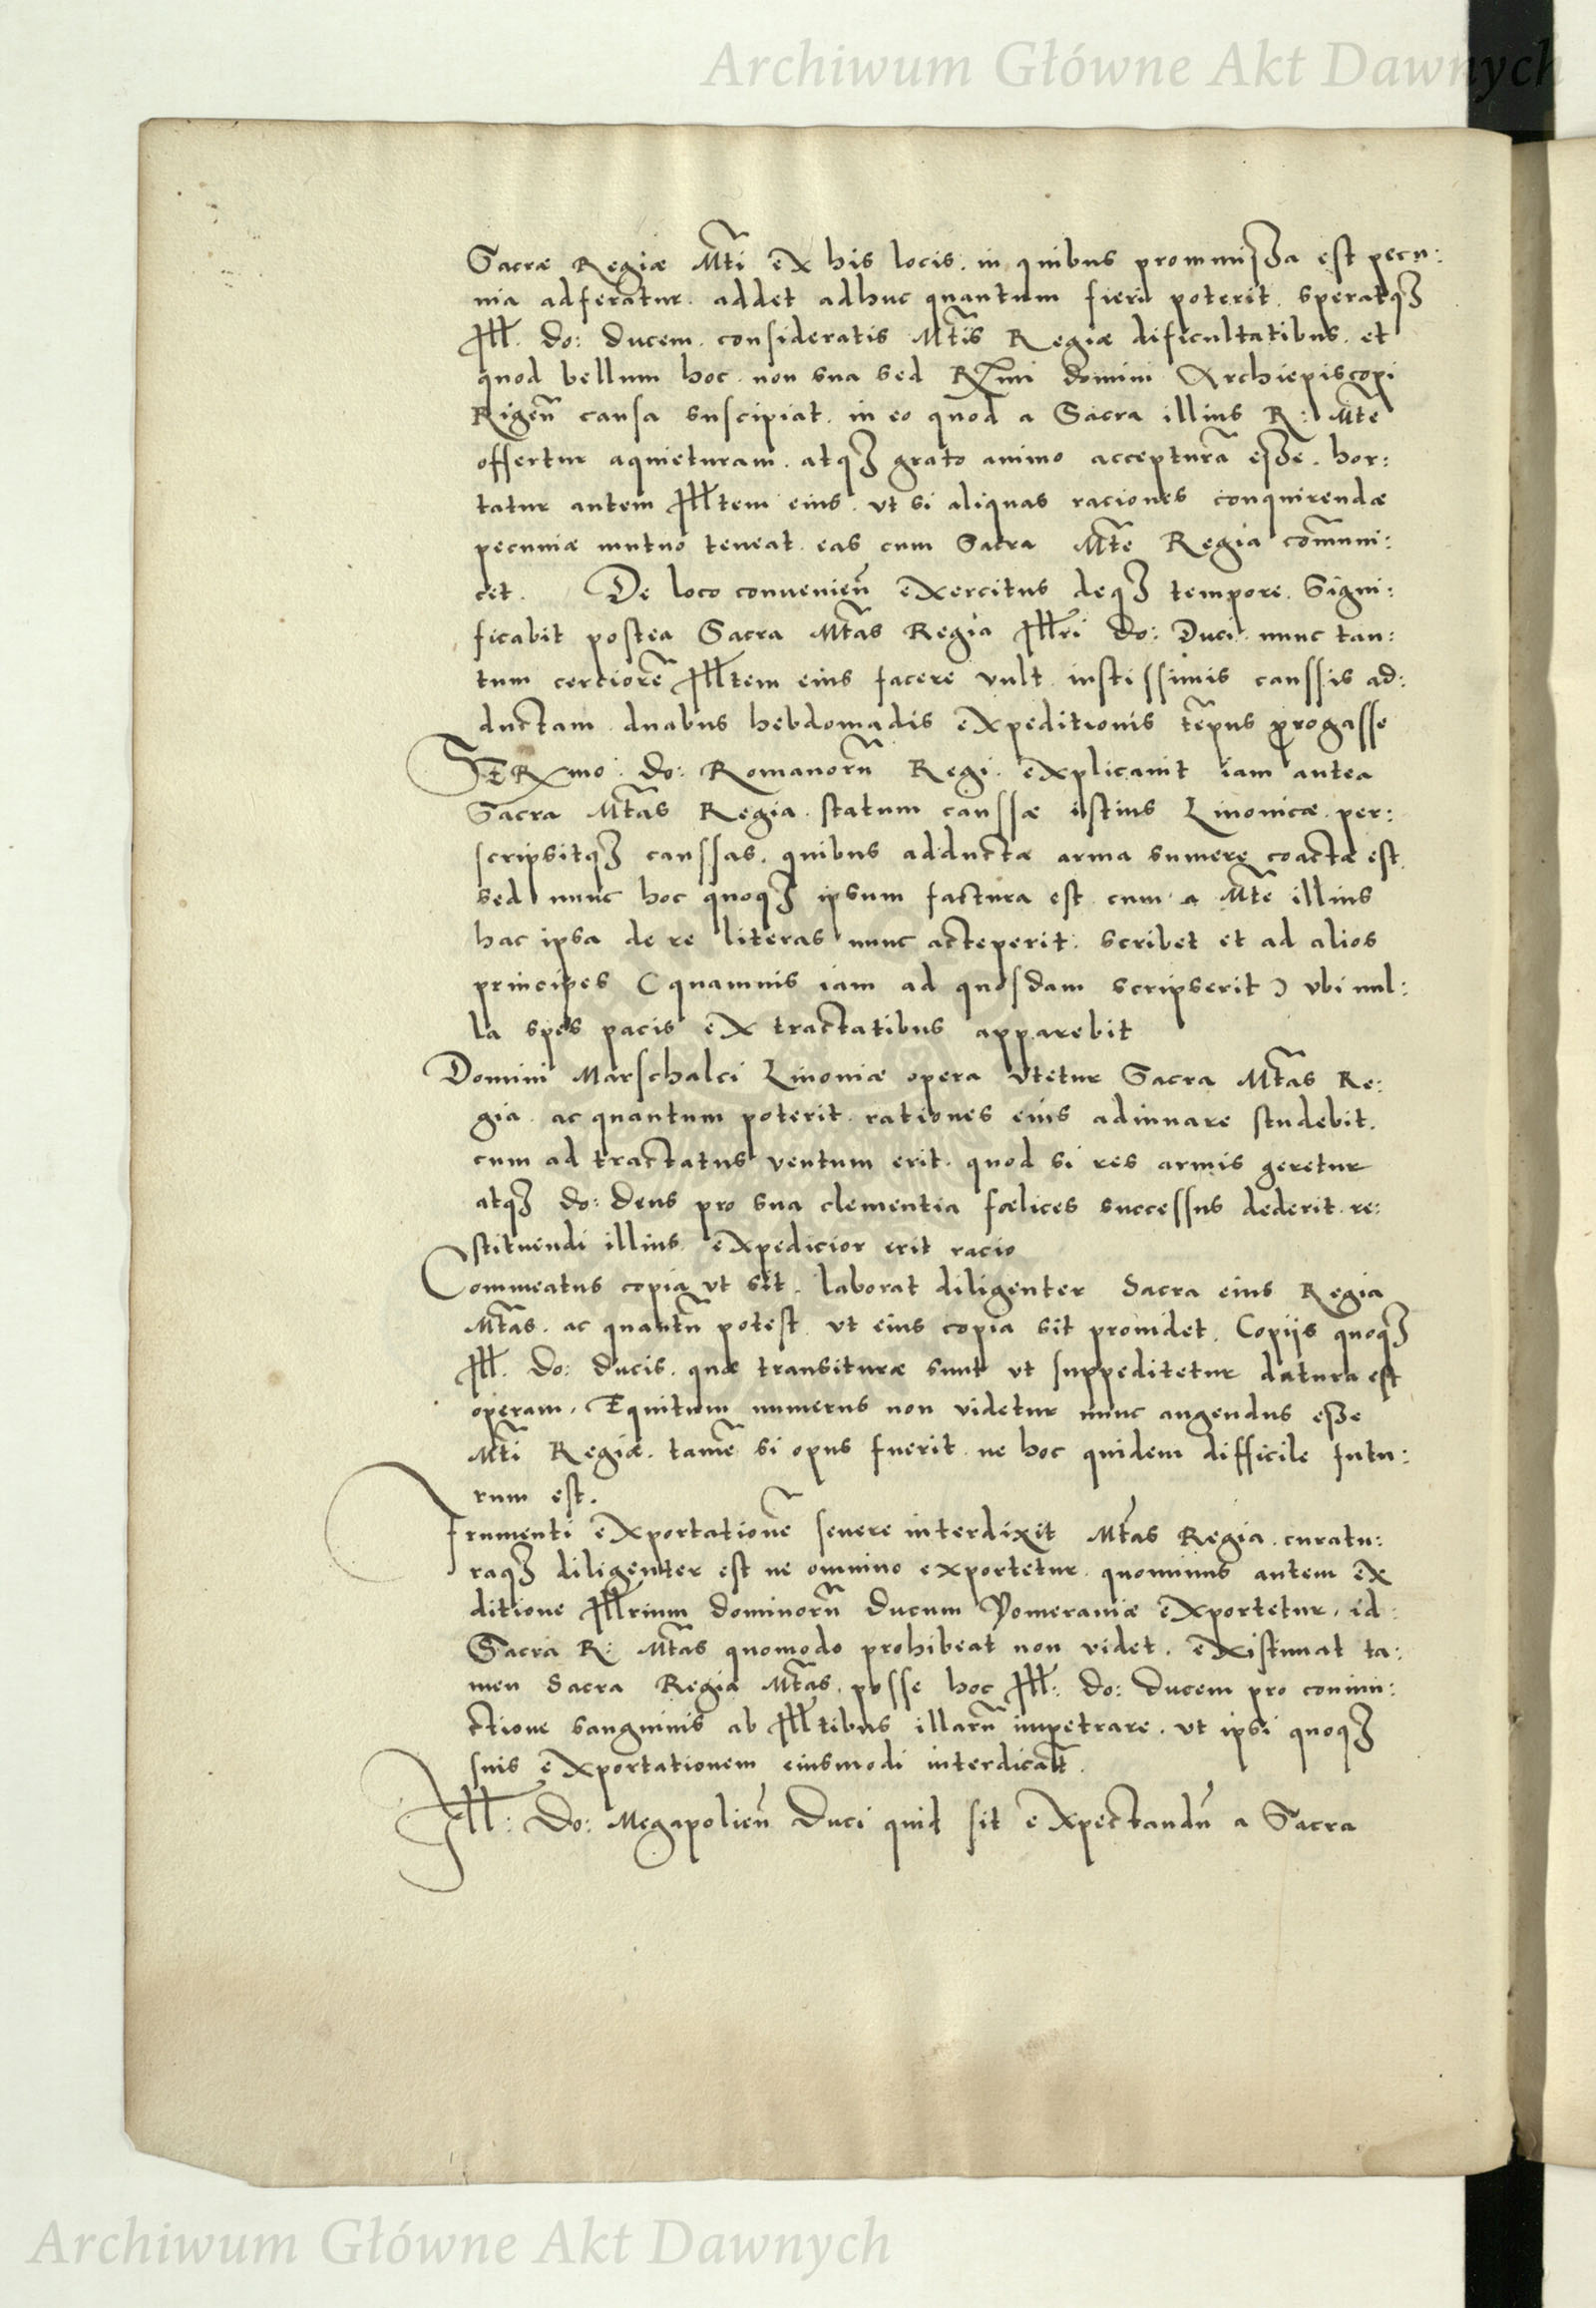 Archiwum Główne Akt Dawnych
Sacræ Regiæ Mti ex his locis. in quibus prommissa est pecu:
nia adferatur. addet adhuc quantum fieri poterit. speratqз
Ill. do: ducem. consideratis Mtis Regiæ dificultatibus. et
quod bellum hoc. non sua sed Rxmi domini Archiepiscopi
Rigeñ causa suscipiat. in eo quod a Sacra illius R: Mte
offertur aquieturam. atqз grato animo acceptura esse. hor:
tatur autem Illtem eius. ut si aliquas raciones conquirendæ
pecuniæ mutuo teneat. eas cum Sacra Mte Regia cõmuni:
cet. De loco convenieñ exercitus deqз tempore. Signi:
ficabit postea Sacra Mtas Regia Illri do: Duci. nunc tan:
tum cerciorẽ Illtem eius facere vult. iustissimis caussis ad:
ductam. duabus hebdomadis expeditionis tẽpus progasse
SERxmo. do: Romanorũ Regi. explicauit iam antea
Sacra Mtas Regia. statum caussæ istius Liuonicæ. per:
scripsitqз caussas. quibus adductæ arma sumere coactæ est.
sed nunc hoc quoqз ipsum factura est. cum a Mte illius
hac ipsa de re literas nunc acteperit. scribet et ad alios
principes (quamuis iam ad quosdam scripserit) ubi nul:
la spes pacis ex tractatibus apparebit
Domini Marschalci Liuoniæ opera utetur Sacra Mtas Re:
gia. ac quantum poterit. rationes eius adiuuare studebit.
cum ad tractatus ventum erit. quod si res armis geretur
atqз do: deus pro sua clementia fœlices successus dederit. re:
stituendi illius expedicior erit racio
Commeatus copia ut sit. laborat diligenter Sacra eius Regia
Mtas. ac quantũ potest. ut eius copia sit prouidet. Copijs quoqз
Ill. do: ducis. quæ transituræ sunt ut suppeditetur datura est
operam. Equitum numerus non videtur nunc augendus esse
Mti Regiæ. tamẽ si opus fuerit. ne hoc quidem difficile futu:
rum est.
Frumenti exportationẽ seuere interdixit Mtas Regia. curatu:
raqз diligenter est ne omnino exportetur. quominus autem ex
ditione Illrium dominorũ Ducum Pomeraniæ exportetur. id:
Sacra R: Mtas quomodo prohibeat non videt. existimat ta:
men Sacra Regia Mtas. posse hoc Ill: do: ducem pro coniun:
ctione sanguinis ab Illtibus illarũ impetrare. ut ipsi quoqз
suis exportationem eiusmodi interdicãt.
Ill: Do: Megapolieñ Duci quid sit expectandũ a Sacra
Archiwum Główne Akt Dawnych